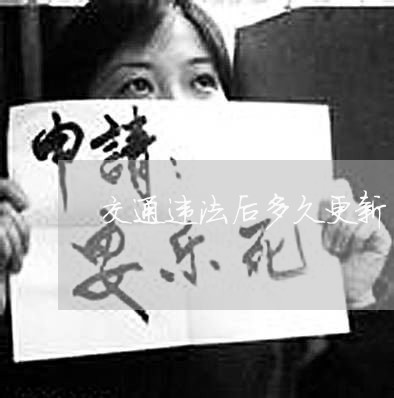 申請：
交通违法后多久更新
安乐死